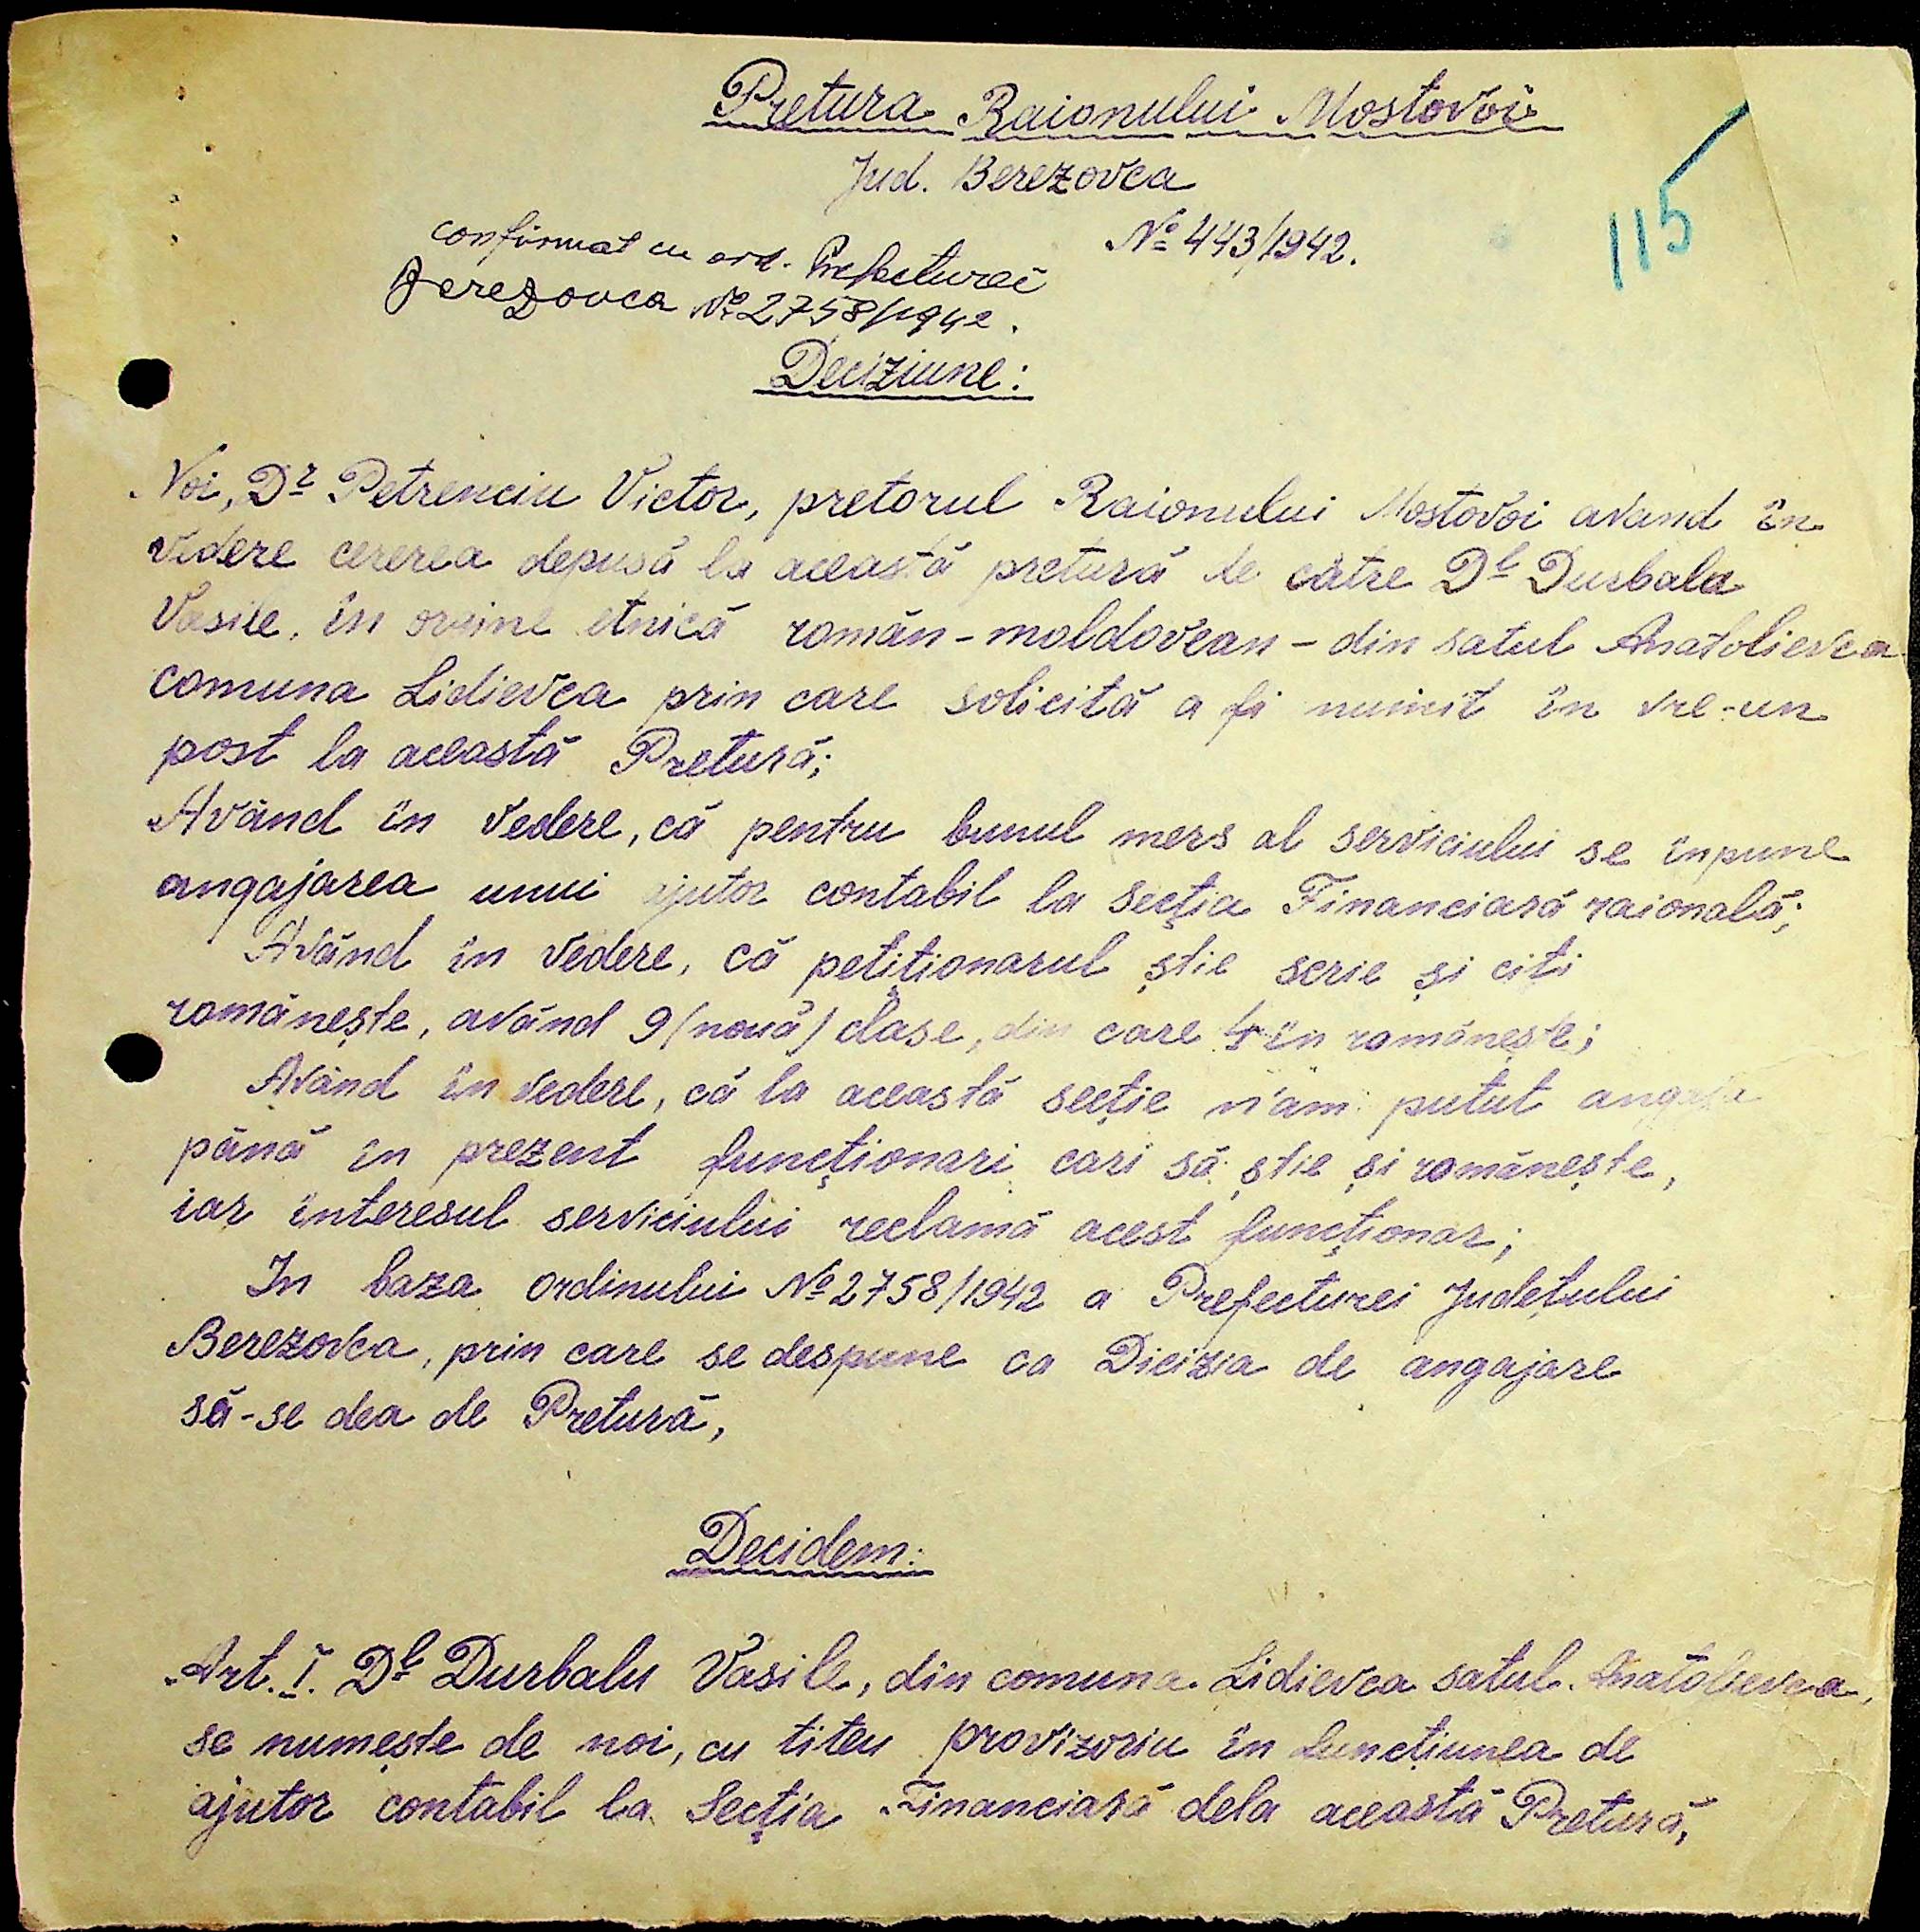 Pretura Raionului Mostovoi
Jud. Berezovca
115
No 443/1942.
confirmat cu ord. Prefecturei
Berezovca No 2758/1942.
Deciziune:
Noi, Dr Petrenciu Victor, pretorul Raionului Mostovoi avand în
vedere cererea depusă la această pretură de către Dl Durbala
Vasile, în origine etnică român-moldovean - din satul Anatolievca
comuna Lidievca prin care solicită a fi numit în vre-un
post la această Pretură;
Având în vedere, că pentru bunul mers al serviciului se înpune
angajarea unui ajutor contabil la secția Financiară raională;
Având în vedere, că petiționarul știe scrie și citi
românește, având 9 (nouă) clase, din care 4 în românește;
Având în vedere, că la această secție n'am putut angaja
până în prezent funcționari cari să știe și românește,
iar interesul serviciului reclamă acest funcționar;
In baza ordinului No 2758/1942 a Prefecturei Județului
Berezovca, prin care se despune ca Dicizia de angajare
să-se dea de Pretură,
Decidem:
Art. I. Dl Durbalu Vasile, din comuna Lidievca satul Anatolievca,
se numește de noi, cu titlu provizoriu în funcțiunea de
ajutor contabil la Secția Financiară dela această Pretură,